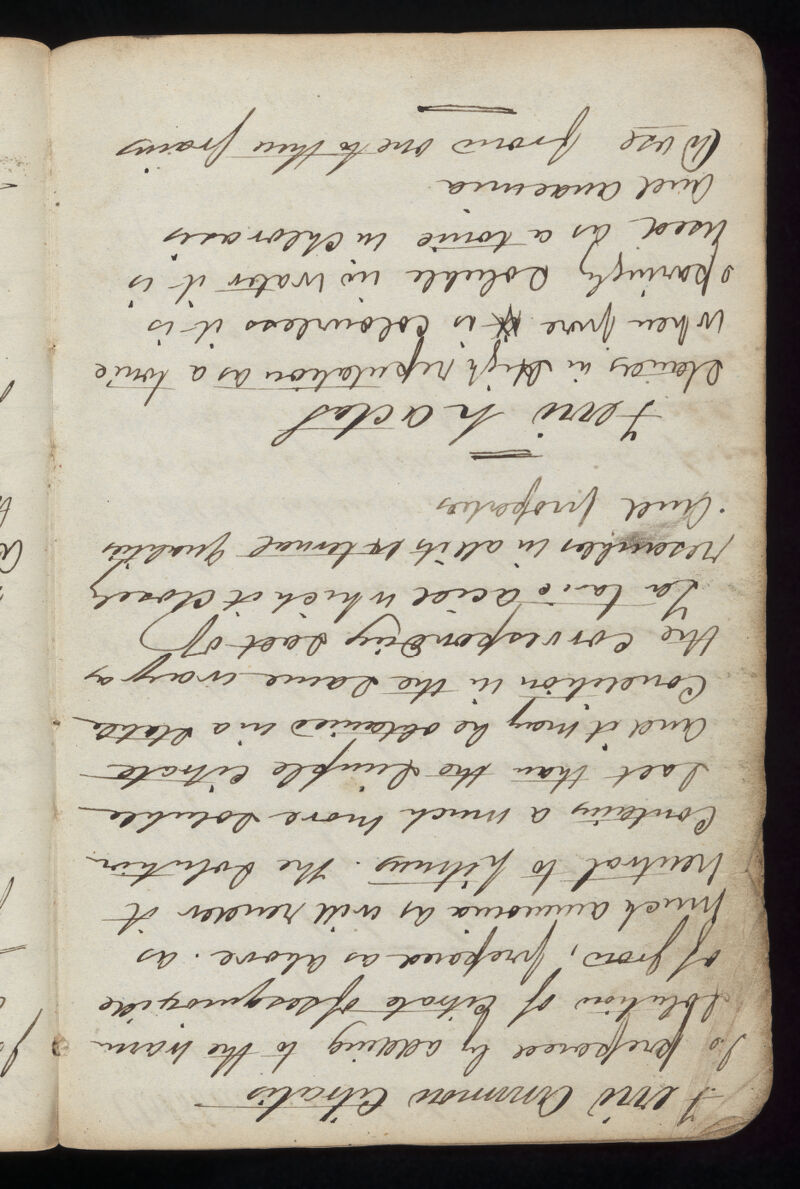 Ferri Ammon Citratis
Is prepared by adding to the warm
solution of Citrate of sesquioxide
of iron, prepared as above. as
much ammonia as will render it
neutral to litmus. The Solution
Contains a much more soluble
salt than the simple Citrate
And it may be obtained in a state
Condition in the same way as
the Corresponding salt of
Tartaric acid which it closely
resembles in all its external qualities
And properties
Ferri Lactas
Stands in high reputation as a tonic
When pure is Colourless it is
sparingly soluble in water it is
used as a tonic in Chlorosis
And anaemia
Dose from one to three grains